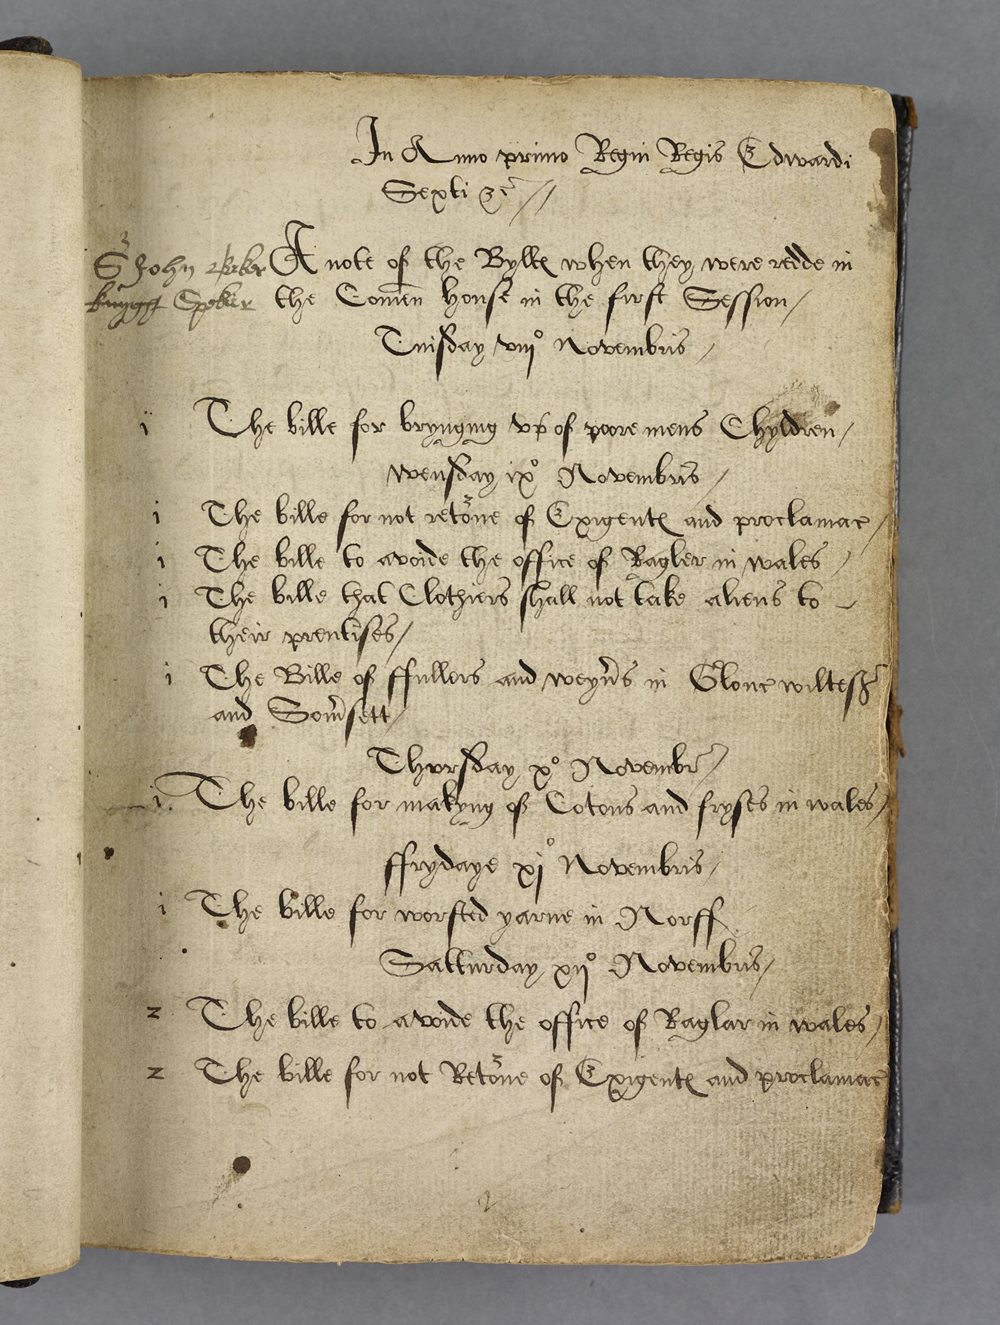 In Anno primo Regni Regis Edwardi
Sexti &c //
Sr John Baker A note of the Bylles when they were redde in
knyght Speker the Comen house in the first Session /
Tuisday viijo Novembris /
i The bille for bryngyng vp of poore mens Chyldren /
wensday ixo Novembris /
i The bille for not retorne of Exigentes and proclamac /
i The bille to avoide the office of Bagler in wales /
i The bille that Clothiers shall not take aliens to
their prentises /
i The Bille of ffullers and in Glouc wiltesh
and Somersett /
Thursday xo Novembr /
i. The bille for makyng of Cotons and fryses in wales /
ffrydaye xjo Novembris /
i The bille for worsted yarne in Norff
Satturday xijo Novembris /
2 The bille to avoide the office of Baglar in wales /
2 The bille for not Retorne of Exigentes and proclamac